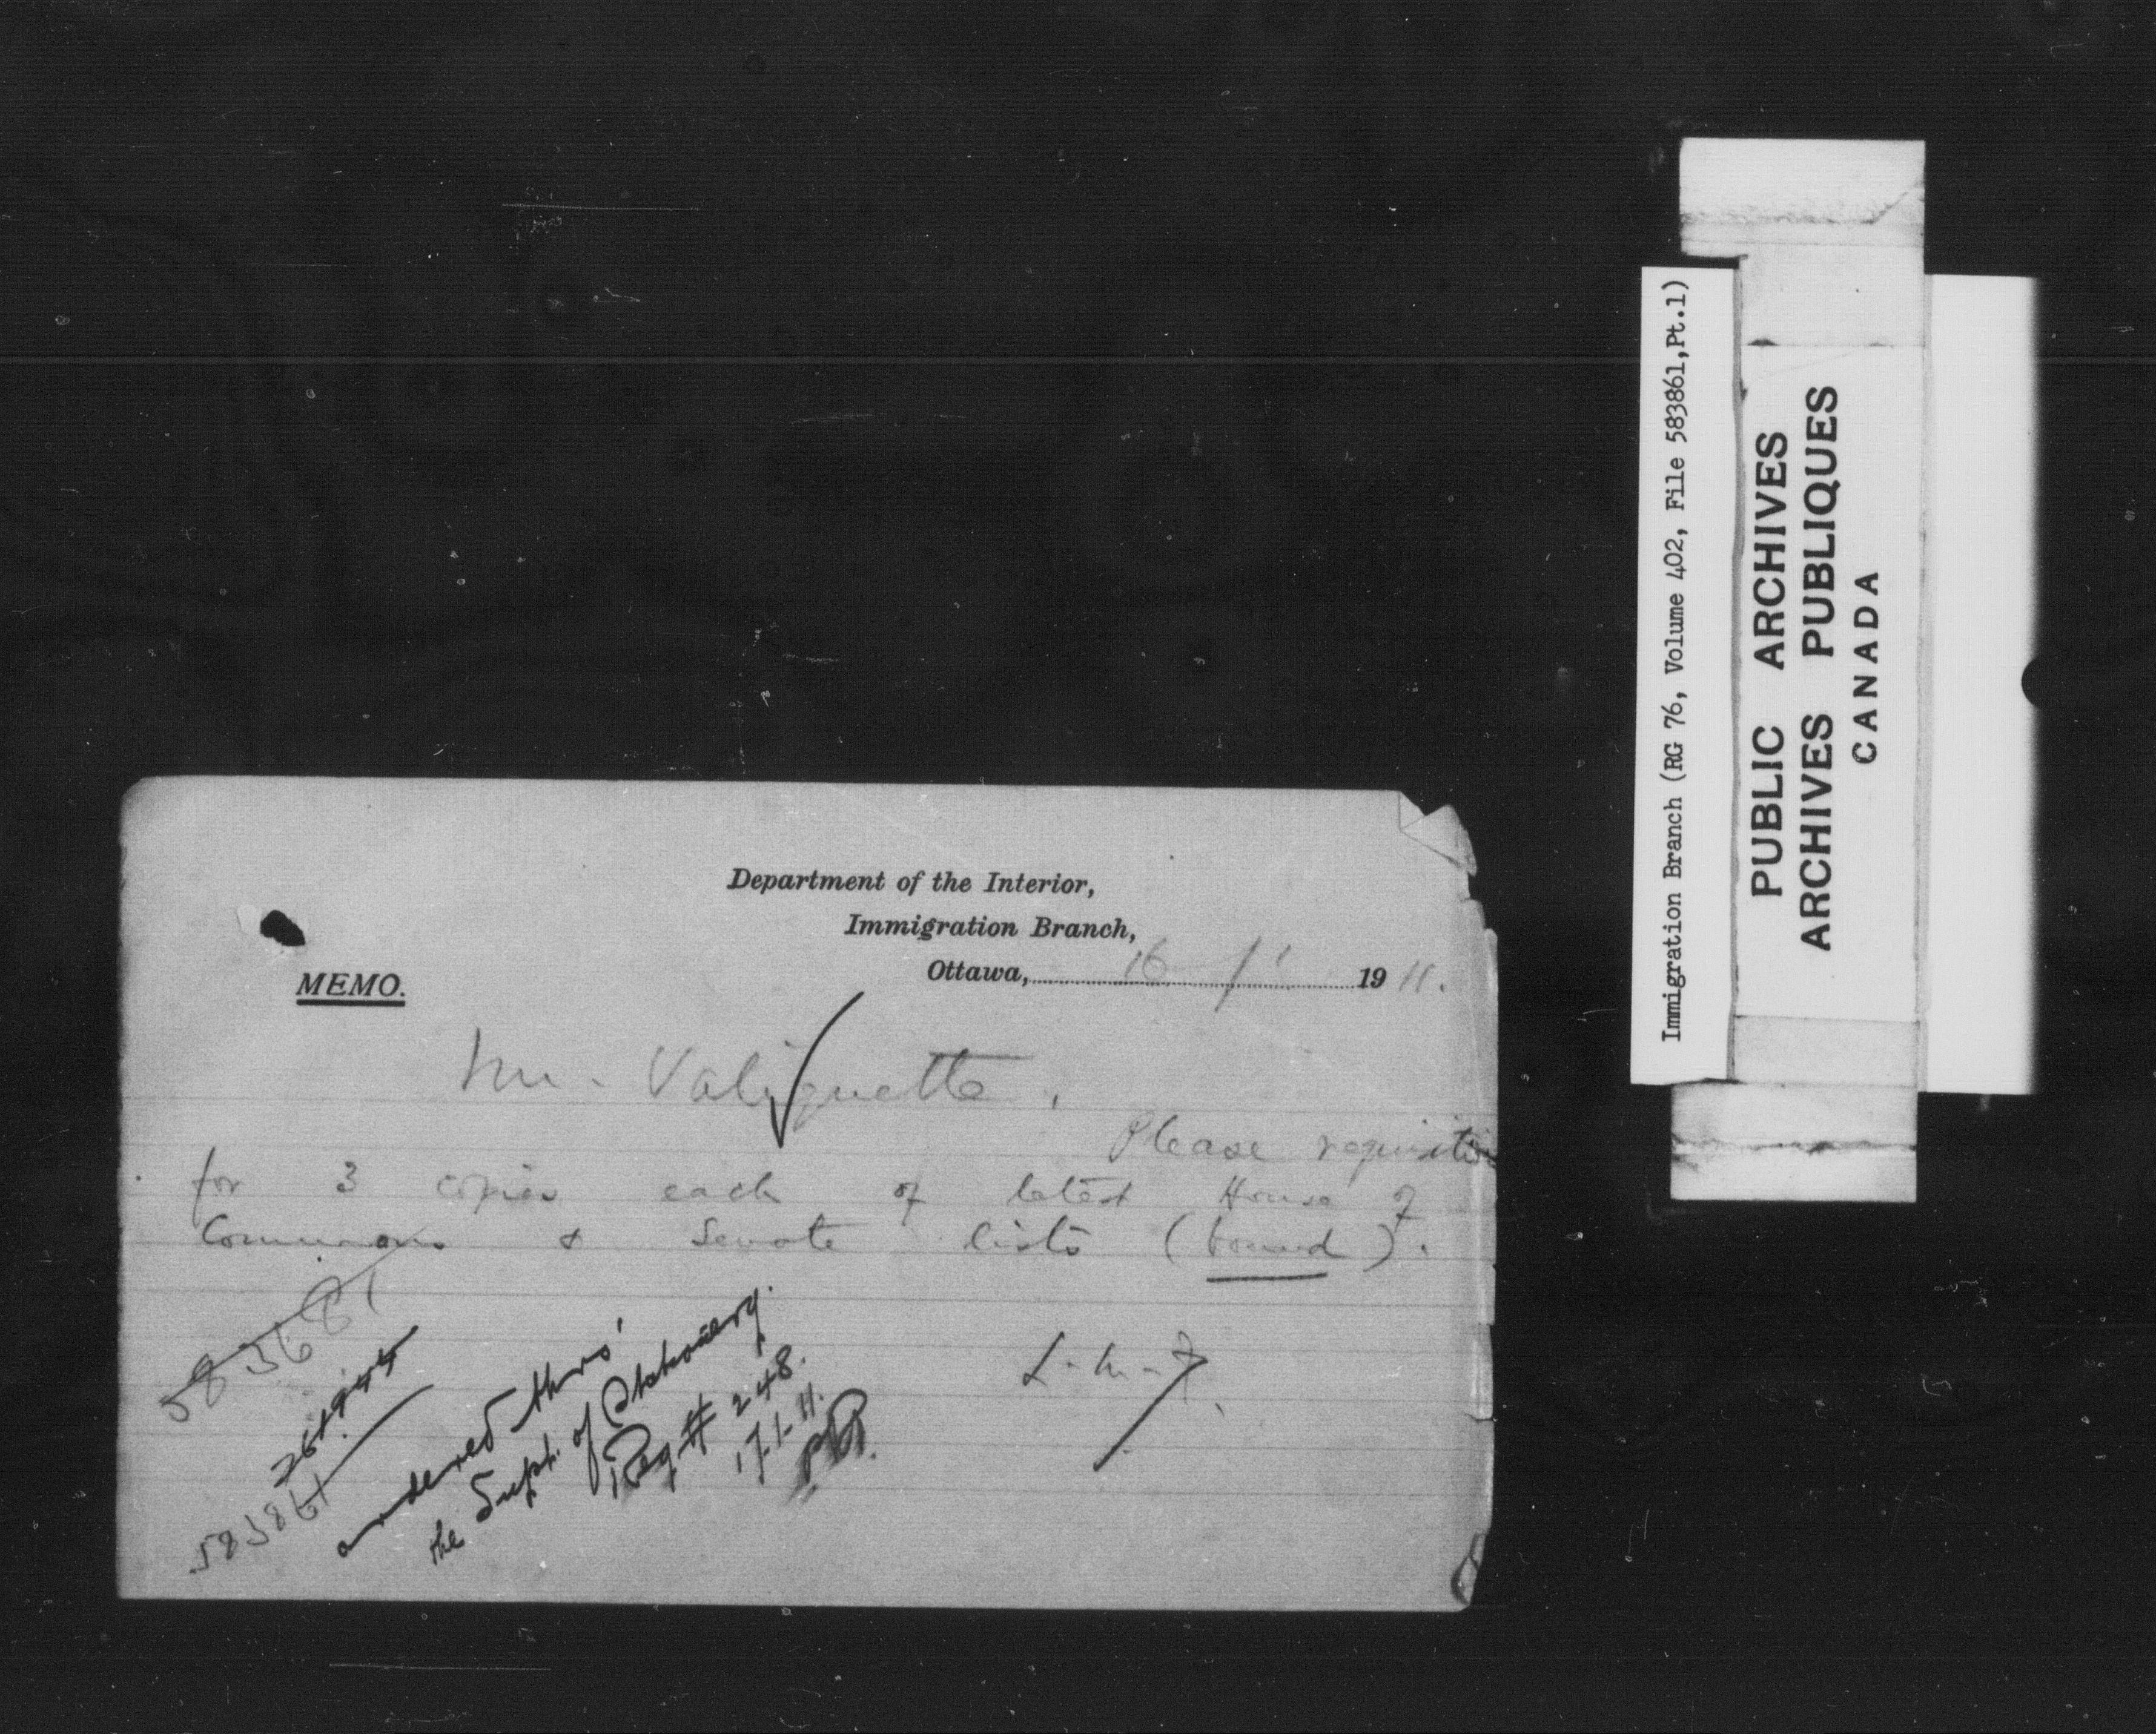 Department of the Interior,
Immigration Branch,
Ottawa, 16/1 1911.
MEMO.
Mr. Valiquette,
Please requisition
for 3 copies each of latest House of
Commons & Senate lists (bound).
L. M. F.
583681
583861
ordered thro'
the Supt. of Stationery.
Req # 248.
17-1-11.
Immigration Branch (RG 76, Volume 402, File 583861,Pt.1)
PUBLIC ARCHIVES
ARCHIVES PUBLIQUES
CANADA